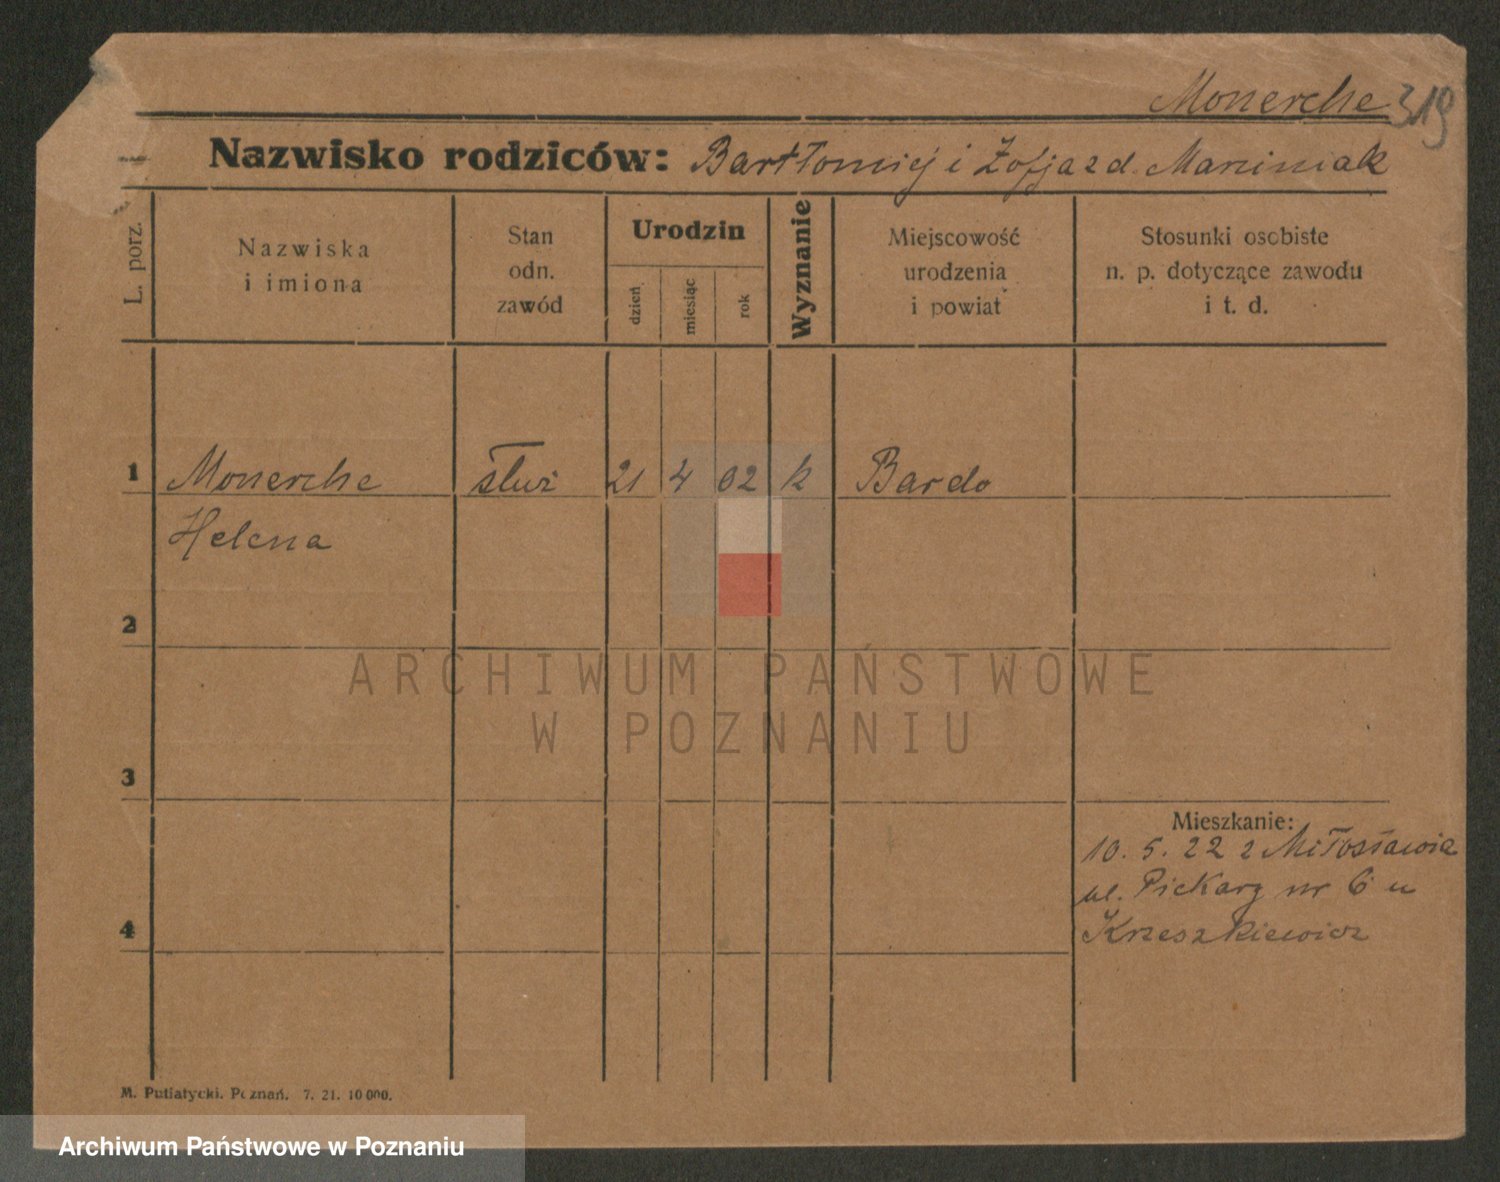 Monerche 319
Nazwisko rodziców: Bartłomiej i Zofja z d. Marciniak
L. porz.
Nazwiska
i imiona
Stan
odn.
zawód
Urodzin
dzień
miesiąc
rok
Wyznanie
Miejscowość
urodzenia
i powiat
Stosunki osobiste
n. p. dotyczące zawodu
i t. d.
1 Monerche służ 21 4 02 k Bardo
Helena
2
3
Mieszkanie:
10. 5. 22 z Miłosławia
ul. Piekary nr 6 u
4 Krzeszkiewicz
M. Putiatycki. Poznań. 7. 21. 10 000.
ARCHIWUM PAŃSTWOWE
W POZNANIU
Archiwum Państwowe w Poznaniu